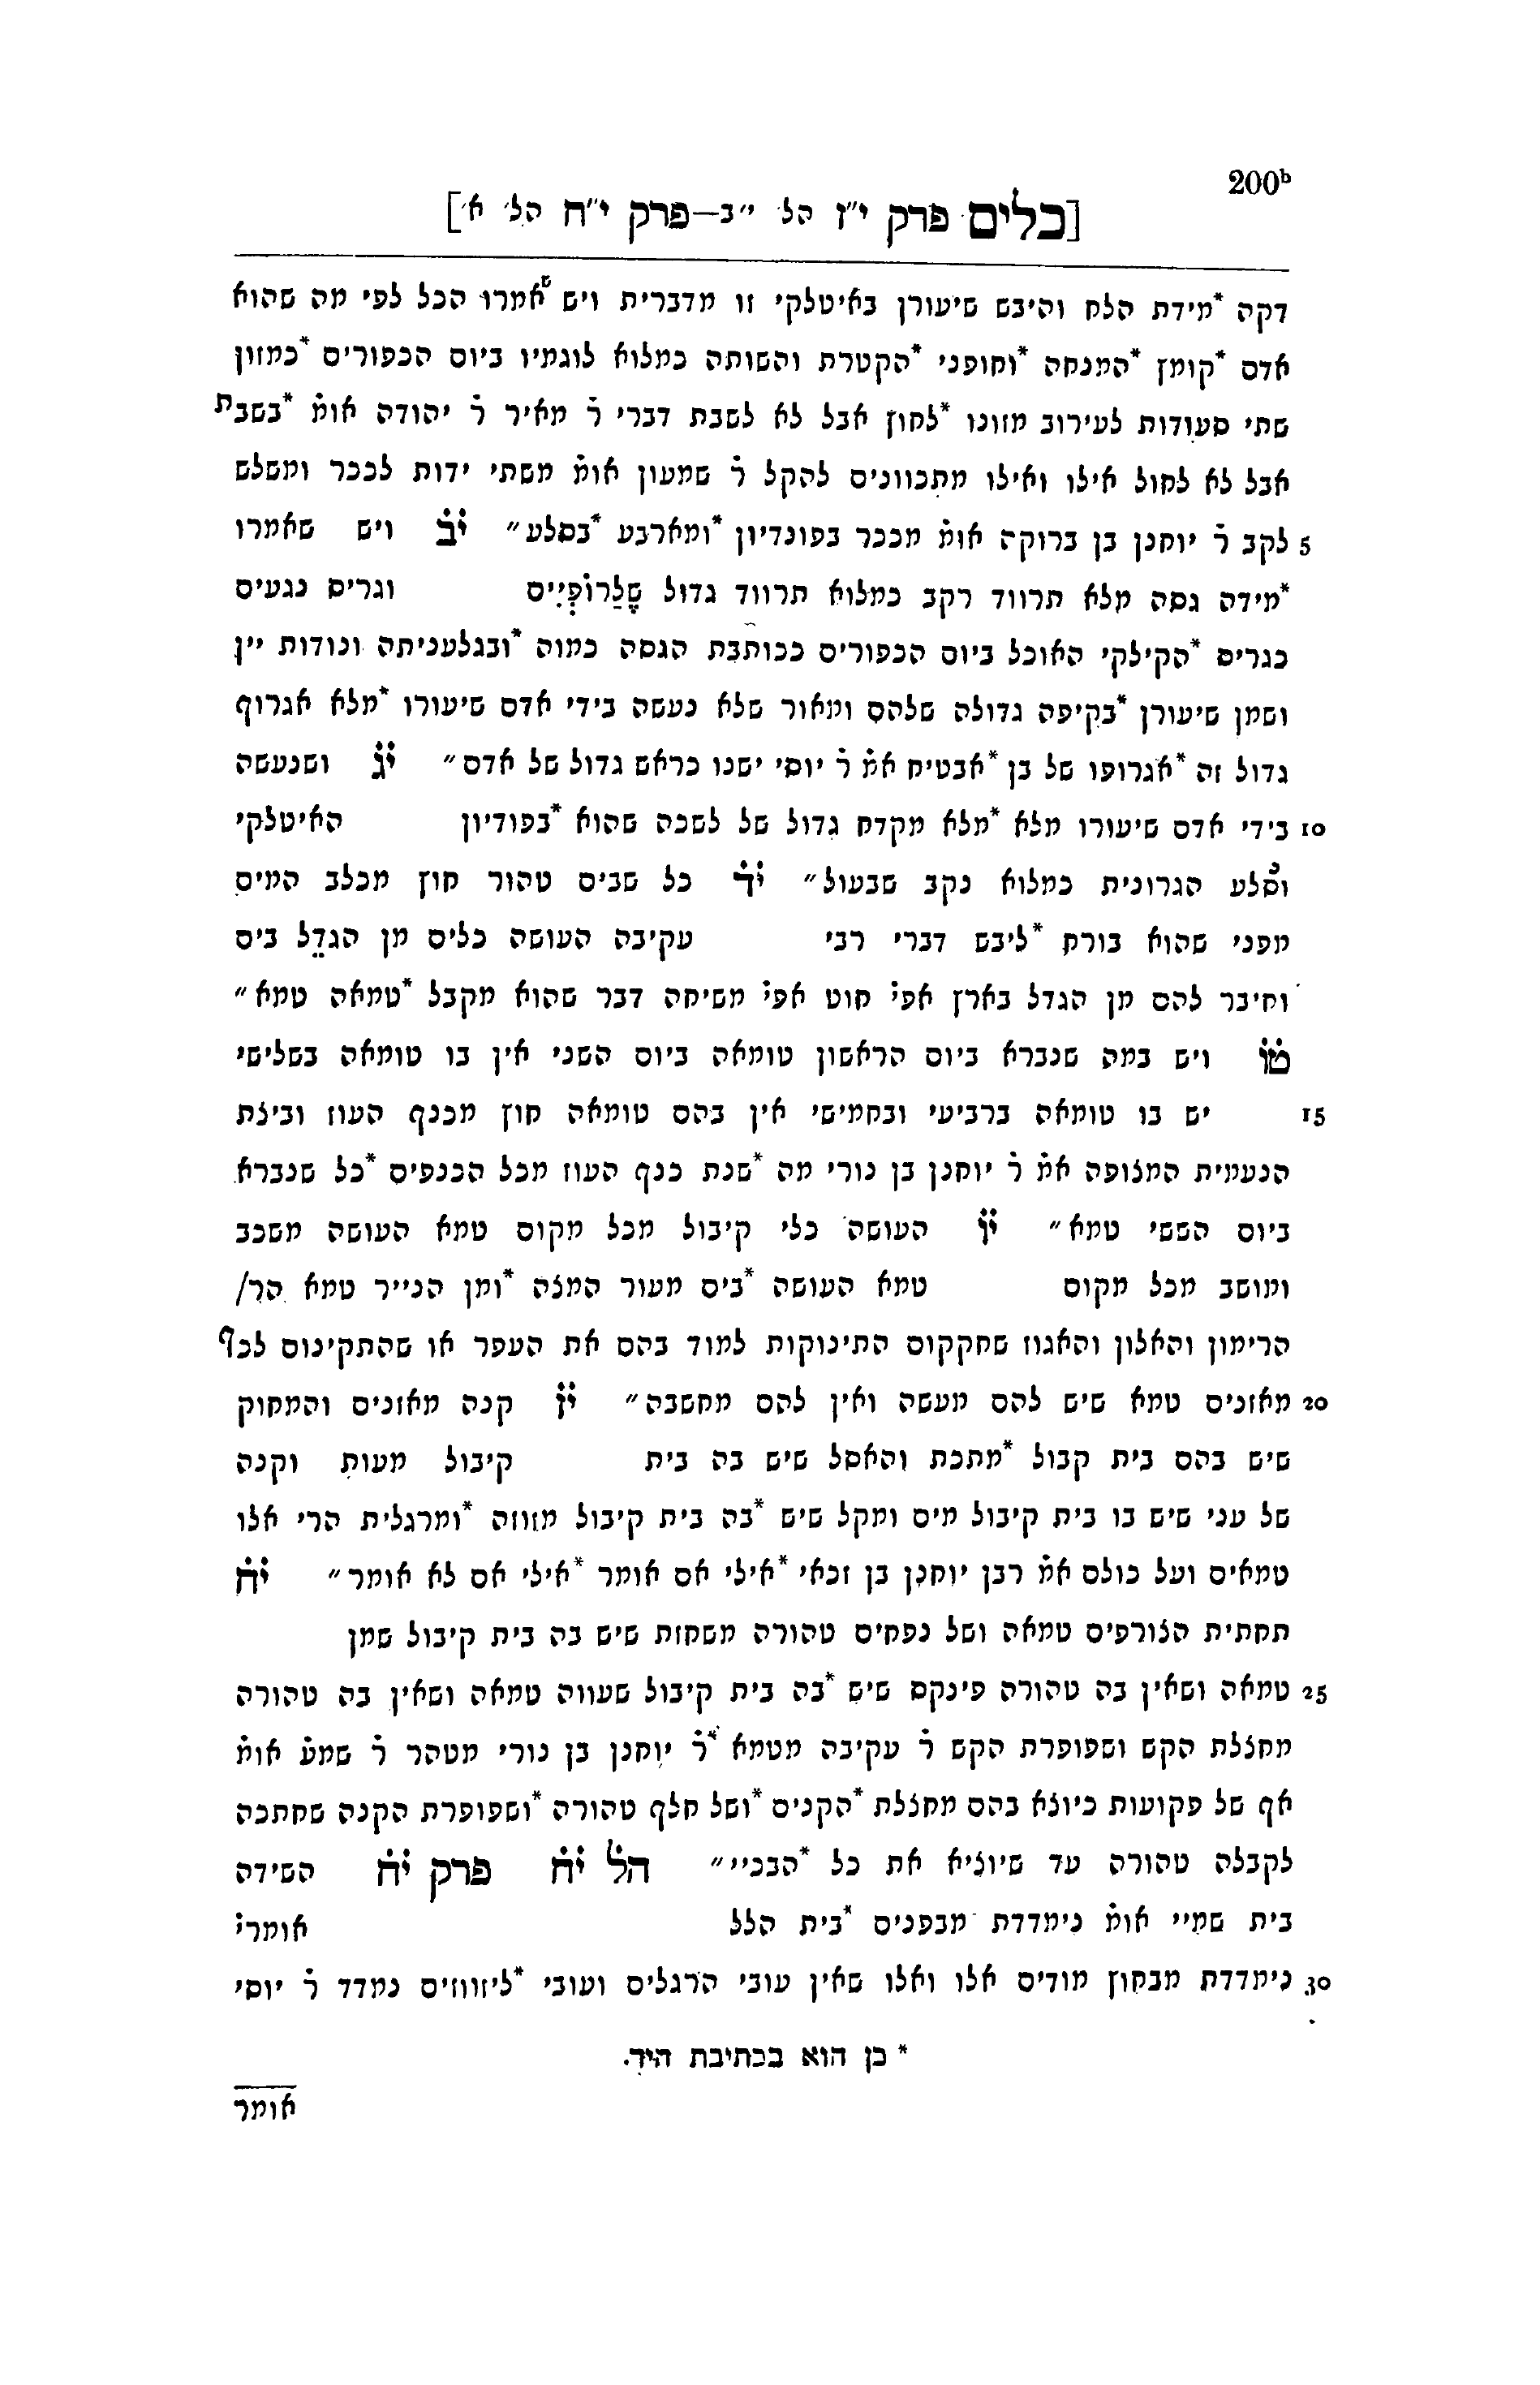 200b
[כלים פרק י״ז הל׳ י״ב—פרק י״ח הל׳ א׳]
דקה *מידת הלח והיבש שיעורן באיטלקי זו מדברית ויש שאמרו הכל לפי מה שהוא
אדם *קומץ *המנחה *וחופני *הקטרת והשותה כמלוא לוגמיו ביום הכפורים *כמזון
שתי סעודות לעירוב מזונו *לחוץ אבל לא לשבת דברי ר׳ מאיר ר׳ יהודה אומ׳ *בשבת
אבל לא לחול אילו ואילו מתכוונים להקל ר׳ שמעון אומ׳ משתי ידות לככר ומשלש
5 לקב ר׳ יוחנן בן ברוקה אומ׳ מככר בפונדיון *ומארבע *בסלע״ יב ויש שאמרו
*מידה גסה מלא תרווד רקב כמלוא תרווד גדול שֶׁלַרוֹפְיִים וגריס נגעים
כגריס *הקילקי האוכל ביום הכפורים ככותבת הגסה כמוה *ובגלעניתה ונודות יין
ושמן שיעורן *בקיפה גדולה שלהם ומאור שלא נעשה בידי אדם שיעורו *מלא אגרוף
גדול זה *אגרופו של בן *אבטיח אמ׳ ר׳ יוסי ישנו כראש גדול של אדם״ יג ושנעשה
10 בידי אדם שיעורו מלא *מלא מקדח גדול של לשכה שהוא *בפודיון האיטלקי
וסלע הגרונית כמלוא נקב שבעול״ יד כל שבים טהור חוץ מכלב המים
מפני שהוא בורח *ליבש דברי רבי עקיבה העושה כלים מן הגדל בים
וחיבר להם מן הגדל בארץ אפי׳ חוט אפי׳ משיחה דבר שהוא מקבל *טמאה טמא״
טו ויש במה שנברא ביום הראשון טומאה ביום השני אין בו טומאה בשלישי
15 יש בו טומאה ברביעי ובחמישי אין בהם טומאה חוץ מכנף העוז וביצת
הנעמית המצופה אמ׳ ר׳ יוחנן בן נורי מה *שנת כנף העוז מכל הכנפים *כל שנברא
ביום הששי טמא״ יו העושה כלי קיבול מכל מקום טמא העושה משכב
ומושב מכל מקום טמא העושה *בים מעור המצה *ומן הנייר טמא הר/
הרימון והאלון והאגוז שחקקום התינוקות למוד בהם את העפר או שהתקינום לכף
20 מאזנים טמא שיש להם מעשה ואין להם מחשבה״ יז קנה מאזנים והמחוק
שיש בהם בית קבול *מתכת והאסל שיש בה בית קיבול מעות וקנה
של עני שיש בו בית קיבול מים ומקל שיש *בה בית קיבול מזוזה *ומרגלית הרי אלו
טמאים ועל כולם אמ׳ רבן יוחנן בן זכאי *אילי אם אומר *אילי אם לא אומר״ יח
תחתית הצורפים טמאה ושל נפחים טהורה משחזת שיש בה בית קיבול שמן
25 טמאה ושאין בה טהורה פינקס שיש *בה בית קיבול שעווה טמאה ושאין בה טהורה
מחצלת הקש ושפופרת הקש ר׳ עקיבה מטמא *ר׳ יוחנן בן נורי מטהר ר׳ שמע׳ אומ׳
אף של פקועות כיוצא בהם מחצלת *הקנים *ושל חלף טהורה *ושפופרת הקנה שחתכה
לקבלה טהורה עד שיוציא את כל *הבכיי״ הל׳ יח פרק יח השידה
בית שמיי אומ׳ נימדדת מבפנים *בית הלל אומרי׳
30 נימדדת מבחוץ מודים אלו ואלו שאין עובי הרגלים ועובי *ליזווזים נמדד ר׳ יוסי
* כן הוא בכתיבת היד.
אומר